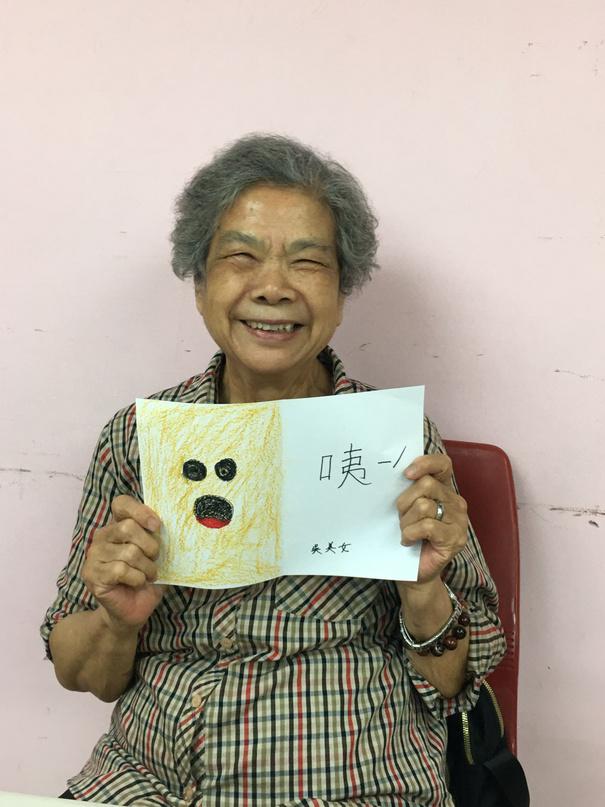 咦－/
吳美女